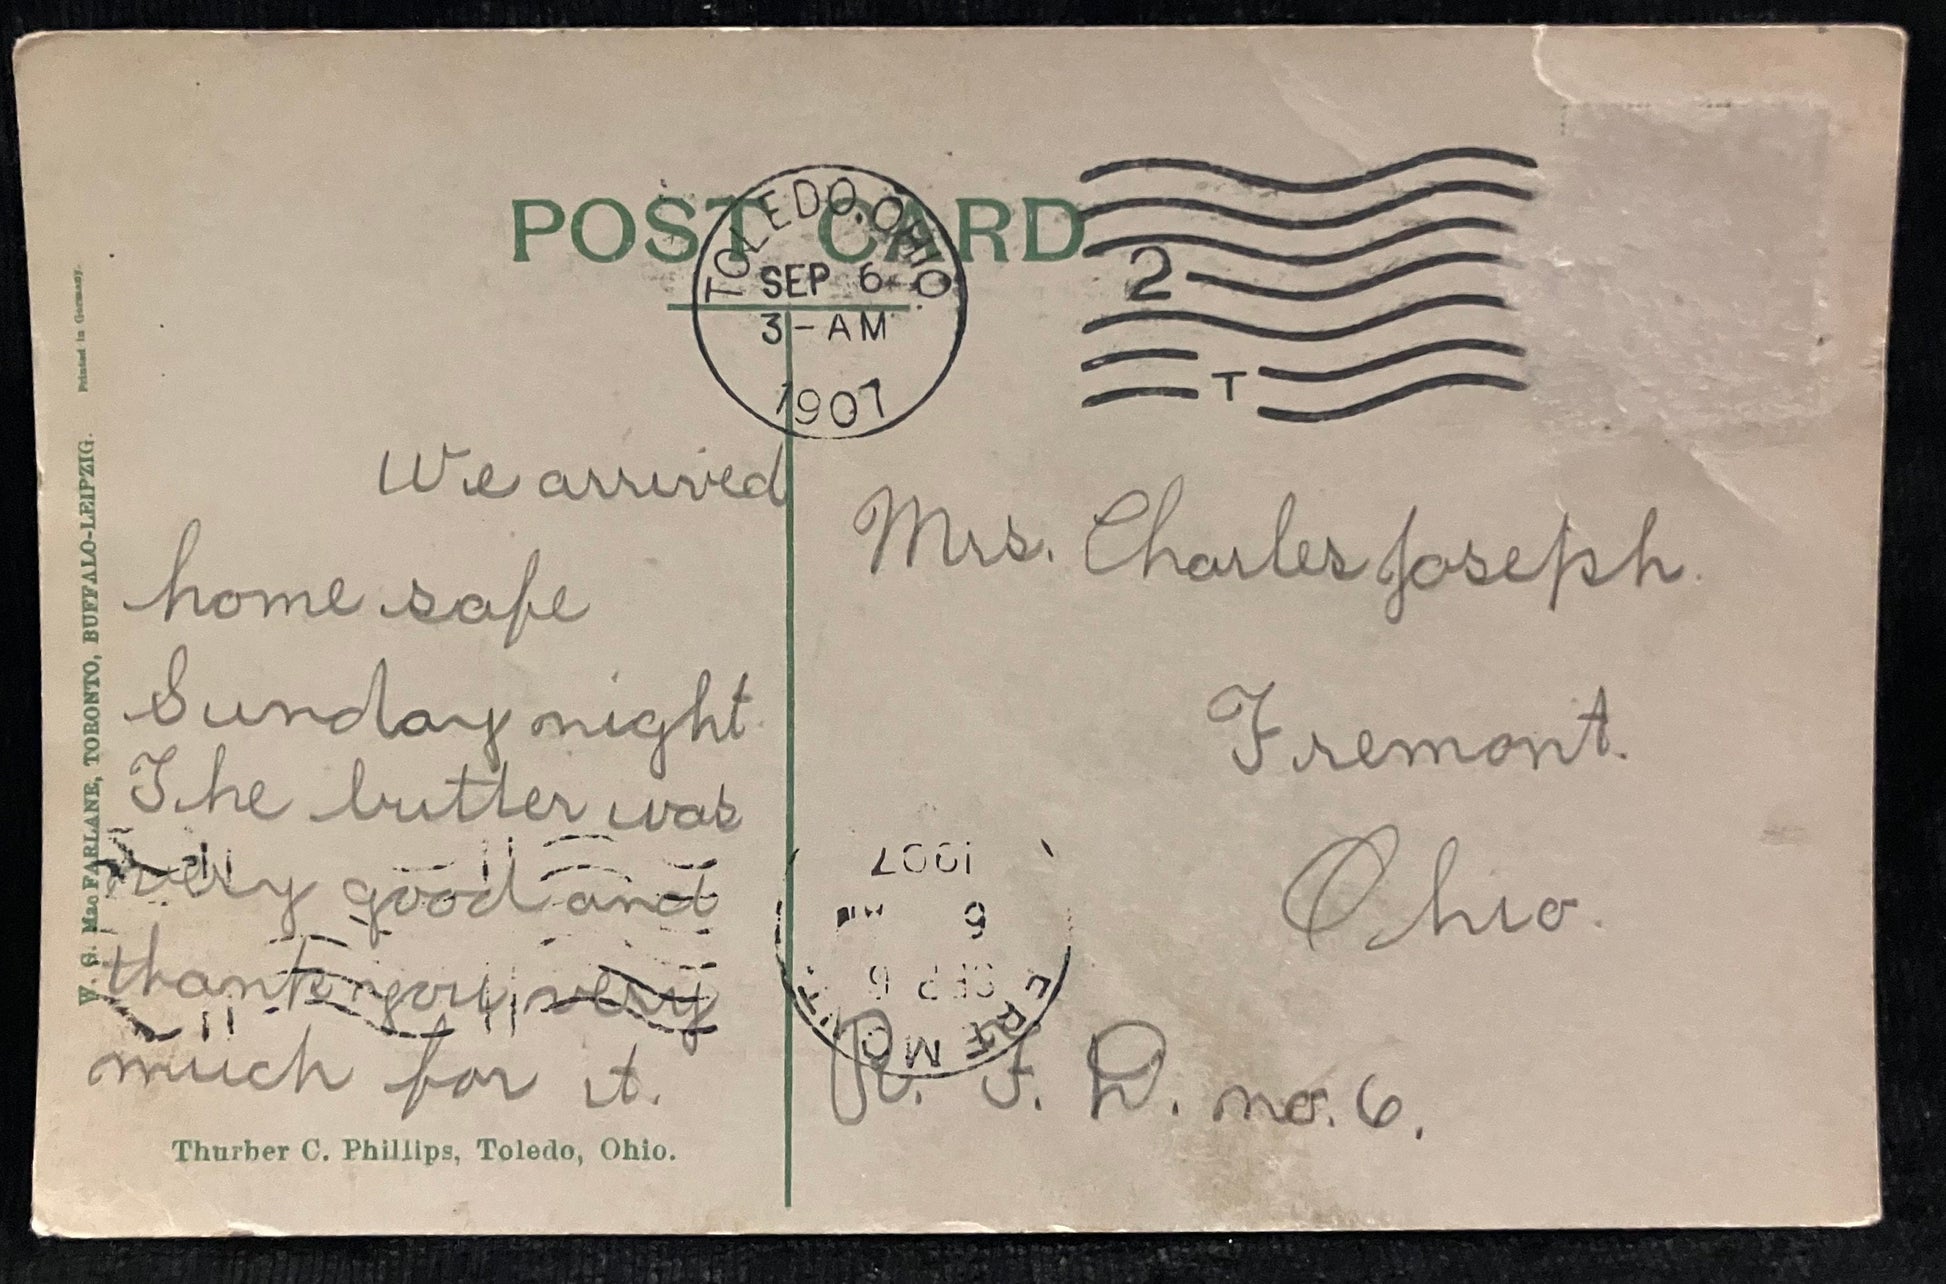 POST CARD
TOLEDO, OHIO.
SEP 6
3-AM
1907
2
T
We arrived
home safe
Sunday night
The butter was
very good and
thank you very
much for it.
Mrs. Charles Joseph.
Fremont.
Ohio.
R. F. D. no. 6.
1907
6
SEP 6
Thurber C. Phillips, Toledo, Ohio.
W. G. MacFARLANE, TORONTO, BUFFALO-LEIPZIG.
Printed in Germany.